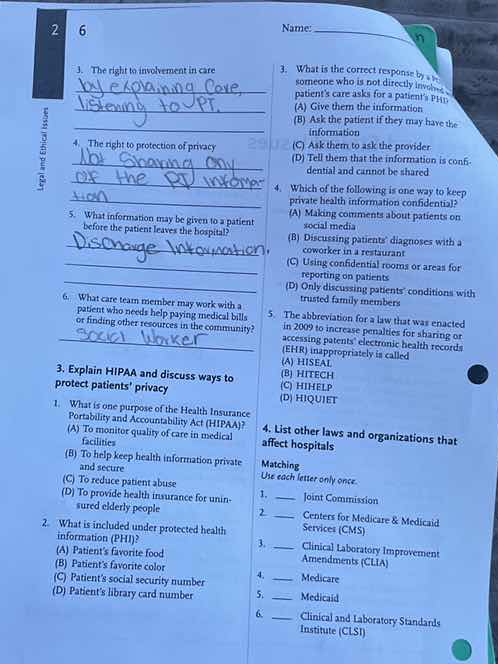 2 6
Name:
n
Legal and Ethical Issues
3. The right to involvement in care
by explaining Care,
listening to PT.
4. The right to protection of privacy
Not Sharing any
of the PT informa-
tion
5. What information may be given to a patient
before the patient leaves the hospital?
Discharge Information.
6. What care team member may work with a
patient who needs help paying medical bills
or finding other resources in the community?
Social Worker
3. Explain HIPAA and discuss ways to
protect patients' privacy
1. What is one purpose of the Health Insurance
Portability and Accountability Act (HIPAA)?
(A) To monitor quality of care in medical
facilities
(B) To help keep health information private
and secure
(C) To reduce patient abuse
(D) To provide health insurance for unin-
sured elderly people
2. What is included under protected health
information (PHI)?
(A) Patient's favorite food
(B) Patient's favorite color
(C) Patient's social security number
(D) Patient's library card number
3. What is the correct response by a
someone who is not directly involved
patient's care asks for a patient's PHI?
(A) Give them the information
(B) Ask the patient if they may have the
information
(C) Ask them to ask the provider
(D) Tell them that the information is confi-
dential and cannot be shared
4. Which of the following is one way to keep
private health information confidential?
(A) Making comments about patients on
social media
(B) Discussing patients' diagnoses with a
coworker in a restaurant
(C) Using confidential rooms or areas for
reporting on patients
(D) Only discussing patients' conditions with
trusted family members
5. The abbreviation for a law that was enacted
in 2009 to increase penalties for sharing or
accessing patents' electronic health records
(EHR) inappropriately is called
(A) HISEAL
(B) HITECH
(C) HIHELP
(D) HIQUIET
4. List other laws and organizations that
affect hospitals
Matching
Use each letter only once.
1. Joint Commission
2. Centers for Medicare & Medicaid
Services (CMS)
3. Clinical Laboratory Improvement
Amendments (CLIA)
4. Medicare
5. Medicaid
6. Clinical and Laboratory Standards
Institute (CLSI)